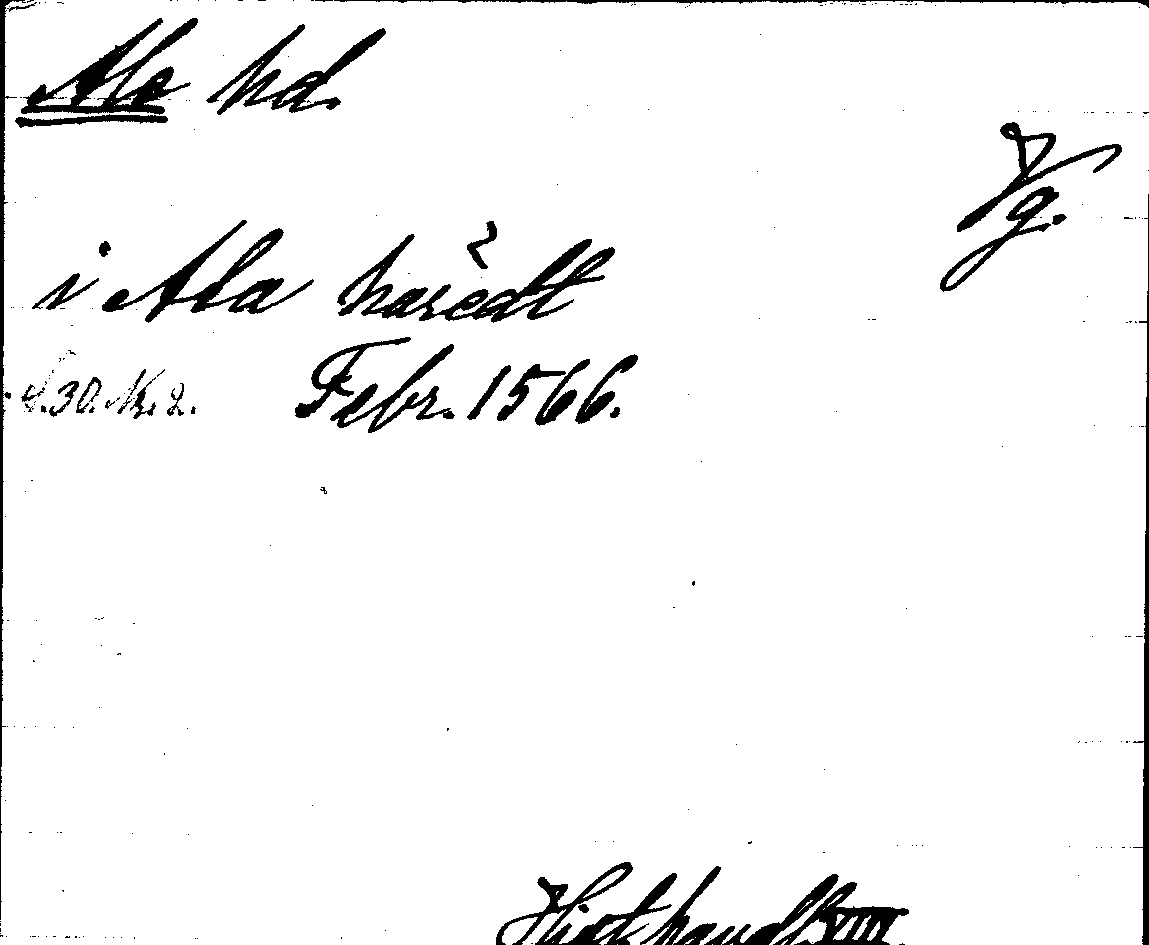 Ale hd.
Vg.
i Ala harẻdt
S. 30. Nr. 2. Febr. 1566.
Hist. handl. VIII